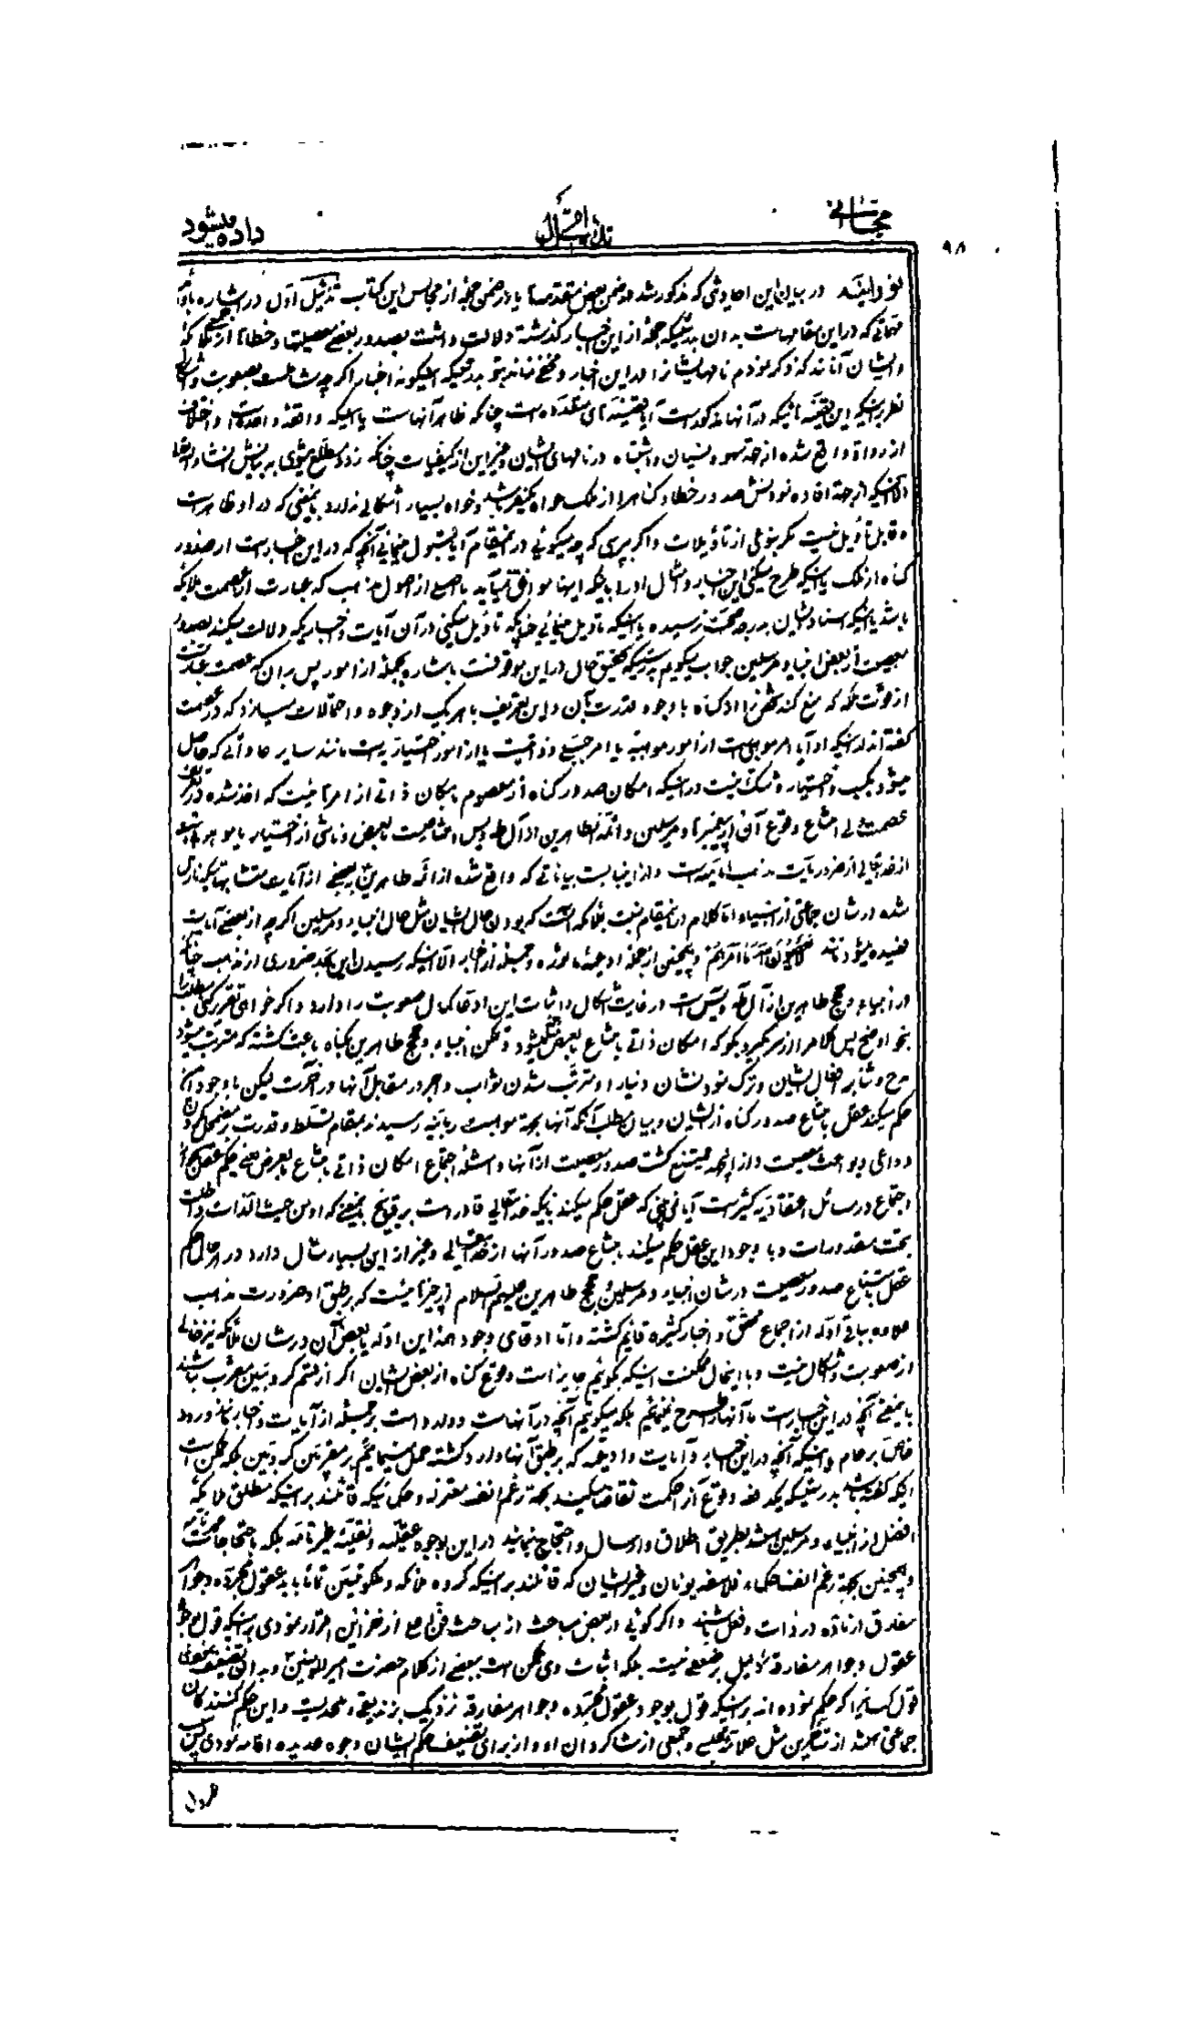 داده میشود
۹۸
در بیان این احادیثی که مذکور شد در ضمن بعض مقدمها یا در ضمن جملهٔ از مجالس این کتاب تذییل اول در اشاره
مهماتی که در این مقامهاست بدان بدرستیکه جملهٔ از این اخبار گذشته دلالت داشت بصدور بعضی معصیتها و خطاها از ملائکه
و ایشان آنانند که ذکر نمودم نامهای ایشانرا در این اخبار و مخفی نماند بتو بدرستیکه اینگونه اخبار اگر چه
نظر باینکه این قضیه هائیکه در آنها مذکور است آیا قضیه های متعدده است چنانکه ظاهر آنهاست یا اینکه واقعه واحده است و اختلاف
از رواة واقع شده از جهة سهو و نسیان و اشتباه در نامهای ایشان و غیر این از کیفیات چنانکه زود مطلع میشوی به بیانش
الا اینکه از جهة افاده نمودنش صدور خطا و گناه را از ملک خواه یکنفر باشد و خواه بسیار اشکالی ندارد باینمعنی که در او ظاهر است
و قابل تأویل نیست مگر بنوعی از تأویلات و اگر بپرسی که چه میگوئی در اینمقام آیا قبول مینمائی آنچه که در این اخبار است از صدور
گناه از ملک یا اینکه طرح میکنی این اخبار و امثال او را باینکه اینها موافق نمیآید با اصلی از اصول مذهب که عبارت از عصمت ملائکه
باشد یا اینکه اسناد ایشان بدرجه صحت نرسیده یا اینکه تأویل مینمائی چنانکه تأویل میکنی در آن آیات و اخباریکه دلالت میکند بصدور
معصیت از بعض انبیاء و مرسلین جواب میگویم بدرستیکه تحقیق حال در این موقوفست باشاره بجملهٔ از امور پس بدان که عصمت عبارت
از قوت ملکهٔ که منع کند شخص را از گناه با وجود قدرت بآن و این تعریف با هر یک از وجوه و احتمالات میسازد که در عصمت
گفته‌اند اینکه او آیا امر موهبتی است از امور موهبیه یا امر جبلی و ذاتیست یا از امور اختیاریست مانند سایر عاداتی که حاصل
میشود بکسب و اختیار و شک نیست در اینکه امکان صدور گناه از معصوم بامکان ذاتی از امرهائیست که اخذ شده در تعریف
عصمت ولی امتناع وقوع آن از پیغمبرها و مرسلین و ائمه طاهرین از آل طه و یس امتناعیست بالعرض و ناشی از اختیار یا موهبة
از خدایتعالی از ضروریات مذهب امامیه است و از اینبابست بیاناتی که واقع شده از ائمه طاهرین بر بعضی از آیات متشابهاتیکه نازل
شده در شان جماعتی از انبیاء اما کلام در اینمقام نسبت بملائکه آنست که بودن حال ایشان مثل حال انبیاء و مرسلین اگر چه از بعضی آیات
فهمیده میشود مانند لا یعصون الله ما امرهم و همچنین از بعض ادعیهٔ ماثوره و جملهٔ از اخبار الا اینکه رسیدن این بحد ضروری از مذهب چنانکه
در انبیاء و حجج طاهرین از آل طه و یس است در غایت اشکال و اثبات این ادعا کمال صعوبت را دارد و اگر خواهی تقریر کنی مطلب را
بنحو اوضح پس کلام را از سر گیر و بگو که امکان ذاتی با امتناع بالعرض جمع میشود و تمکن انبیاء و حجج طاهرین بگناه باعث گشته که مترتب میشود
مدح و ثنا بر افعال ایشان و ترک نمودنشان دنیا را و مترتب شدن ثواب و اجر در مقابل آنها در آخرت لیکن با وجود این
حکم میکند عقل بامتناع صدور گناه از ایشان و بیان مطلب آنکه آنها بجهة موهبت ربانیه رسیدند بمقام تسلط و قدرت
دواعی و بواعث معصیت و از اینجهة ممتنع گشت صدور معصیت از آنها و امثله اجتماع امکان ذاتی با امتناع بالعرض
اجتماع در مسائل اعتقادیه کثیر است آیا نمی بینی که عقل حکم میکند باینکه خدایتعالی قادر است بر قبایح باینمعنی که او من حیث الذات داخلست
تحت مقدورات و با وجود این عقل حکم میکند بامتناع صدور آنها از خدایتعالی و غیر از این بسیار مثال دارد در هر حال حکم
عقل بامتناع صدور معصیت در شان انبیاء و مرسلین و حجج طاهرین علیهم السلام از چیزهائیست که بر طبق او ضرورت مذهب
علاوه بباقی ادله از اجماع محقق و اخبار کثیره قائم گشته و اما ادعای وجود همه این ادله یا بعض آن در شان ملائکه نیز خالی
از صعوبت و اشکال نیست و با اینحال ممکنست اینکه بگوئیم جایز است وقوع گناه از بعض ایشان اگر از قسم کروبیین و مقرب نباشند
باینمعنی آنچه در این اخبار است ما آنها را طرح نمینمائیم بلکه میگوئیم آنچه در آنهاست وارد است بر جملهٔ از آیات و اخبار مانند ورود
خاص بر عام و اینکه آنچه در این اخبار و آیات و ادعیه که بر طبق آنها وارد گشته حمل مینمائیم بر مقربین کروبیین بلکه ممکن است
اینکه گفته باشد بدرستیکه یکدفعه وقوع آنرا حکمت تقاضا میکند بجهة رغم انف معتزله و حکمائیکه قائلند بر اینکه مطلق ملائکه
افضل از انبیاء و مرسلین باشد بطریق اطلاق و ارسال و احتجاج نمایند در این بوجوه عقلیه و نقلیه غیر تامه بلکه باحتجاجات
و همچنین بجهة رغم انف حکماء فلاسفه یونان و غیر ایشان که قائلند بر اینکه گروه ملائکه و ملکوتیین تماما باید عقول مجرده و جواهر
مفارق از ماده در ذات و فعل باشند و اگر گوئی در بعض مباحث از مباحث فن رابع از خزائن اقرار نمودی باینکه قول بوجود
عقول و جواهر مفارقة لا دلیل بر ضعفی نیست بلکه اثبات وی ممکن است ببعضی از کلام حضرت امیرالمومنین و بدان تضعیف
قول کسانیرا که حکم نموده‌اند بر اینکه قول بوجود عقول مجرده و جواهر مفارقه نزدیک بزندیقی و ملحدیست و این حکم کنندگان
جماعتی هستند از متأخرین مثل علامه مجلسی و جمعی از شاگردان او و از برای تضعیف حکم ایشان وجوه عدیده اقامه نمودی پس